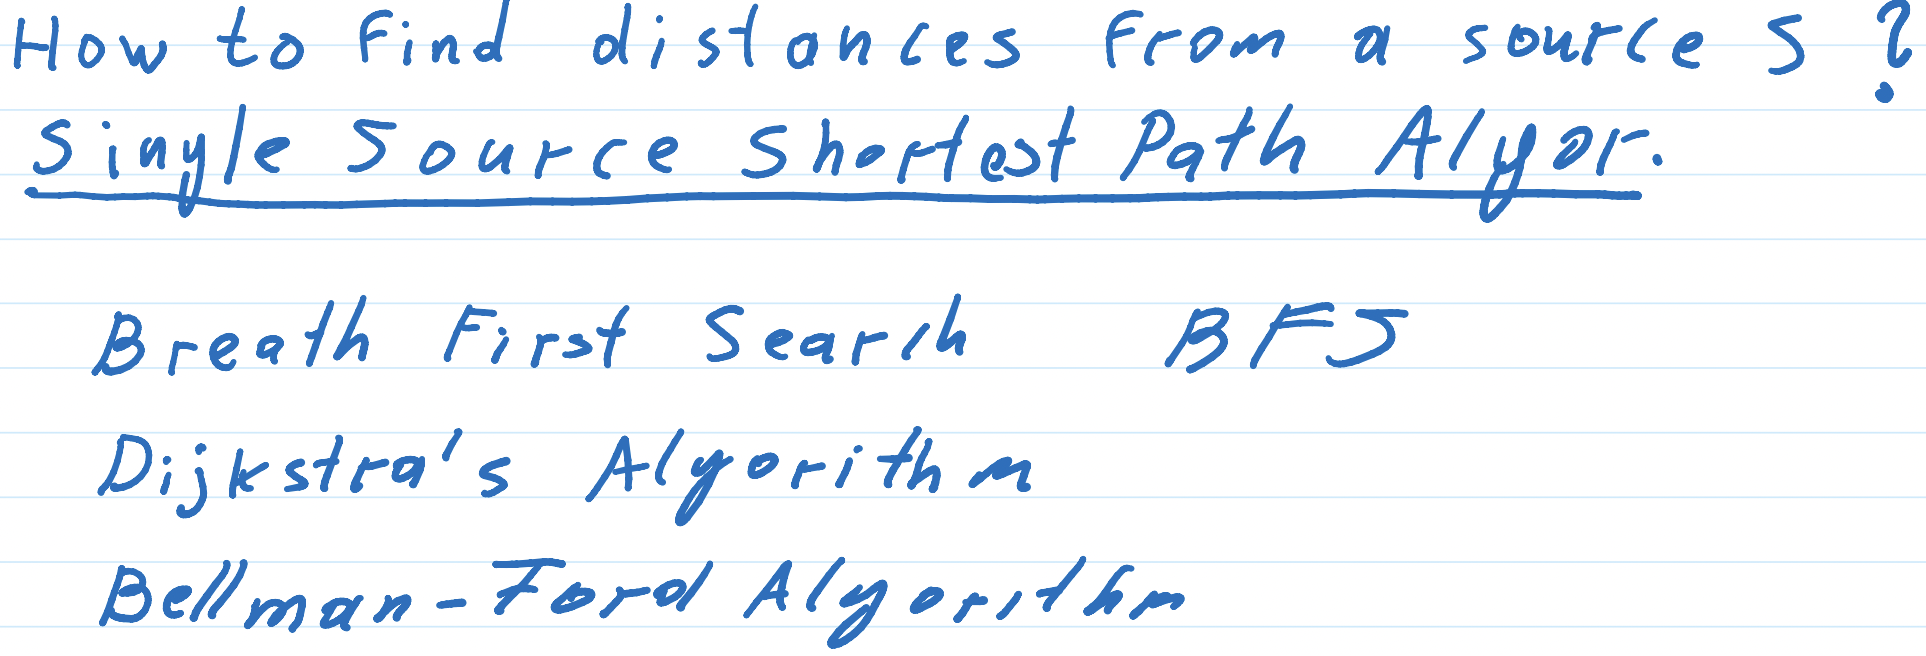 How to find distances from a source S?
Single Source Shortest Path Algor.
Breath First Search BFS
Dijkstra's Algorithm
Bellman-Ford Algorithm